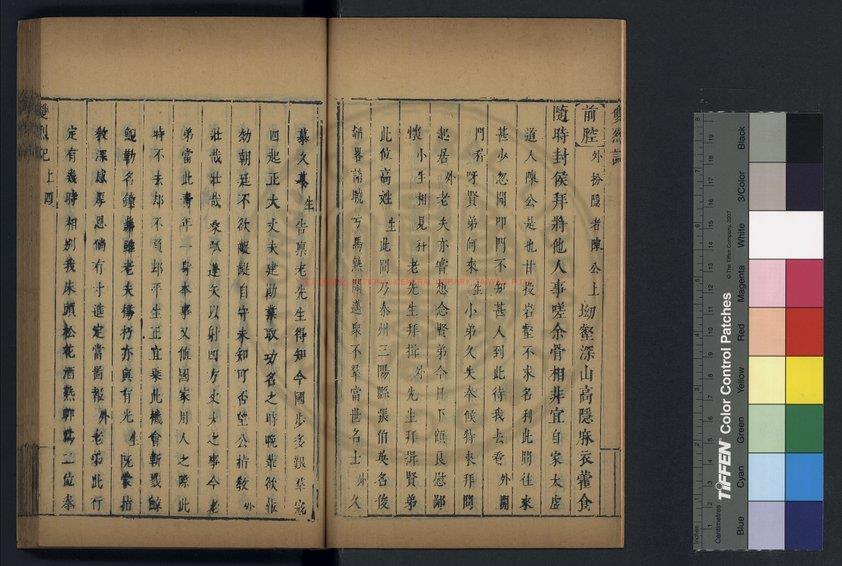 雙烈記
前腔 外扮隱者陳公上 坳壑深山高隱麻衣藿食
隨時封侯拜將他人事嗟余骨相非宜自家太虛
道人陳公是也甘投岩壑不求名利此間往來
甚少忽聞叩門不知甚人到此待我去看 外開
門看呀賢弟何來 生 小弟久失奉候特來拜問
起居 外 老夫亦嘗想念賢弟今日下顧良慰鄙
懷 小生相見 老先生拜揖 外 先生拜揖賢弟
此位高姓 生 此間乃泰州三陽縣張伯英名俊
韜畧諳曉弓馬熟閑邁衆不羣當世名士 外 久
慕久慕 生 告禀老先生得知今國步多艱羣寇
四起正大丈夫建勛業取功名之時晚輩欲報
効朝廷不欲齷齪自守未知可否望公指教 外
壯哉壯哉桑弧蓬矢以射四方丈夫之事今老
弟當此青年一身本事又值國家用人之際此
時不去却不負却平生正宜乘此機會斬戮鯨
鯢勒名鐘鼎雖老夫朽亦與有光 生 旣蒙指
教深感厚恩倘有寸進定當茜報 外 老弟此行
定有幾時相別我床頭松花酒熟卽為二位奉
雙烈記 上 四
TIFFEN Color Control Patches
© The Tiffen Company, 2007
Centimetres
Inches
Blue
Cyan
Green
Yellow
Red
Magenta
White
3/Color
Black